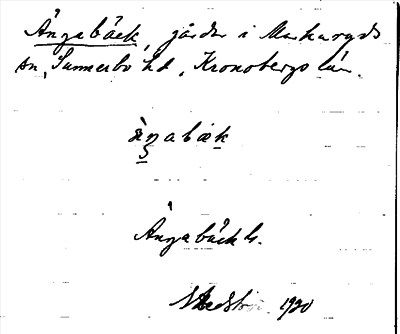 Ängabäck, gårdar i Markaryds
sn, Sunnerbo hd, Kronobergs län.
Ängabäck
1920